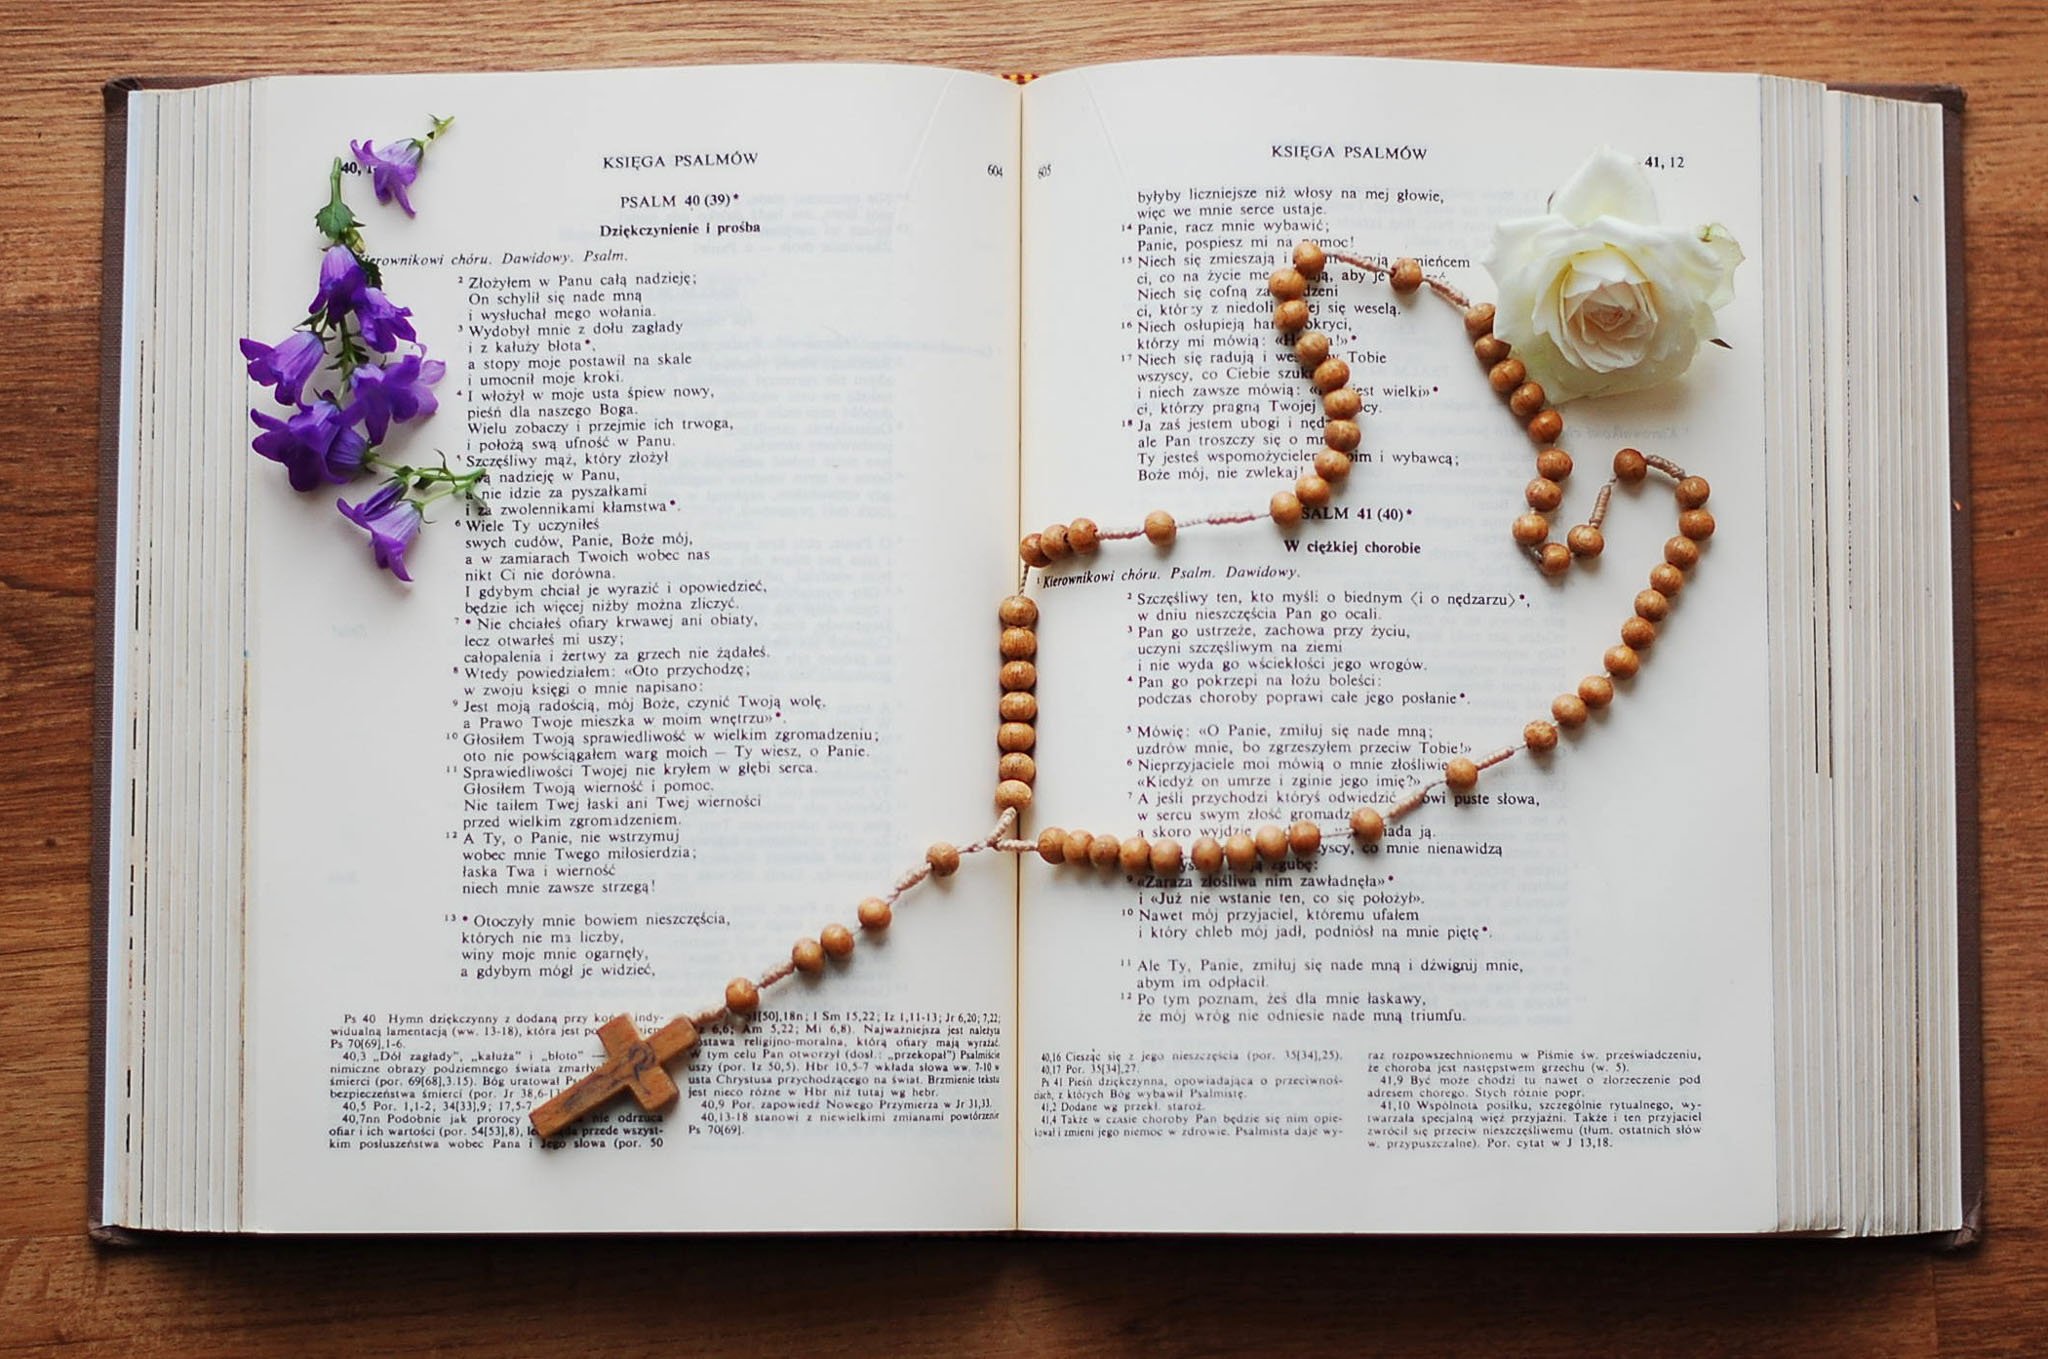 KSIĘGA PSALMÓW
604
PSALM 40 (39)*
Dziękczynienie i prośba
Kierownikowi chóru. Dawidowy. Psalm.
2 Złożyłem w Panu całą nadzieję;
On schylił się nade mną
i wysłuchał mego wołania.
3 Wydobył mnie z dołu zagłady
i z kałuży błota*,
a stopy moje postawił na skale
i umocnił moje kroki.
4 I włożył w moje usta śpiew nowy,
pieśń dla naszego Boga.
Wielu zobaczy i przejmie ich trwoga,
i położą swą ufność w Panu.
5 Szczęśliwy mąż, który złożył
swą nadzieję w Panu,
a nie idzie za pyszałkami
i za zwolennikami kłamstwa*.
6 Wiele Ty uczyniłeś
swych cudów, Panie, Boże mój,
a w zamiarach Twoich wobec nas
nikt Ci nie dorówna.
I gdybym chciał je wyrazić i opowiedzieć,
będzie ich więcej niżby można zliczyć.
7 * Nie chciałeś ofiary krwawej ani obiaty,
lecz otwarłeś mi uszy;
całopalenia i żertwy za grzech nie żądałeś.
8 Wtedy powiedziałem: «Oto przychodzę;
w zwoju księgi o mnie napisano:
9 Jest moją radością, mój Boże, czynić Twoją wolę,
a Prawo Twoje mieszka w moim wnętrzu»*.
10 Głosiłem Twoją sprawiedliwość w wielkim zgromadzeniu;
oto nie powściągałem warg moich — Ty wiesz, o Panie.
11 Sprawiedliwości Twojej nie kryłem w głębi serca.
Głosiłem Twoją wierność i pomoc.
Nie taiłem Twej łaski ani Twej wierności
przed wielkim zgromadzeniem.
12 A Ty, o Panie, nie wstrzymuj
wobec mnie Twego miłosierdzia;
łaska Twa i wierność
niech mnie zawsze strzegą!
13 * Otoczyły mnie bowiem nieszczęścia,
których nie ma liczby,
winy moje mnie ogarnęły,
a gdybym mógł je widzieć,
Ps 40 Hymn dziękczynny z dodaną przy indy-
widualną lamentacją (ww. 13-18), która jest
Ps 70[69],1-6.
40,3 „Dół zagłady", „kałuża" i „błoto" —
nimiczne obrazy podziemnego świata
śmierci (por. 69[68],3.15). Bóg uratował
bezpieczeństwa śmierci (por. Jr 38,6-
40,5 Por. 1,1-2, 34[33],9; 17,5-7
40,7nn Podobnie jak prorocy nie odrzuca
ofiar i ich wartości (por. 54[53],8), przede wszyst-
kim posłuszeństwa wobec Pana i Jego słowa (por. 50
[50],18n; I Sm 15,22; Iz 1,11-13; Jr 6,20; 7,22;
6,6; Am 5,22; Mi 6,8). Najważniejsza jest należyta
postawa religijno-moralna, którą ofiary mają wyrażać.
W tym celu Pan otworzył (dosł.: „przekopał") Psalmiście
uszy (por. Iz 50,5). Hbr 10,5-7 wkłada słowa ww. 7-10 w
usta Chrystusa przychodzącego na świat. Brzmienie tekstu
jest nieco różne w Hbr niż tutaj wg hebr.
40,9 Por. zapowiedź Nowego Przymierza w Jr 31,33.
40,13-18 stanowi z niewielkimi zmianami powtórzenie
Ps 70[69].
605
KSIĘGA PSALMÓW
41, 12
byłyby liczniejsze niż włosy na mej głowie,
więc we mnie serce ustaje.
14 Panie, racz mnie wybawić;
Panie, pospiesz mi na pomoc!
15 Niech się zmieszają i rumieńcem
ci, co na życie me aby je
Niech się cofną
ci, którzy z się weselą.
16 Niech osłupieją okryci,
którzy mi mówią:
17 Niech się radują i Tobie
wszyscy, co Ciebie
i niech zawsze mówią: jest wielki»*
ci, którzy pragną Twojej
18 Ja zaś jestem ubogi i
ale Pan troszczy się o
Ty jesteś wspomożycielem moim i wybawcą;
Boże mój, nie zwlekaj!
PSALM 41 (40)*
W ciężkiej chorobie
1 Kierownikowi chóru. Psalm. Dawidowy.
2 Szczęśliwy ten, kto myśli o biednym ⟨i o nędzarzu⟩*,
w dniu nieszczęścia Pan go ocali.
3 Pan go ustrzeże, zachowa przy życiu,
uczyni szczęśliwym na ziemi
i nie wyda go wściekłości jego wrogów.
4 Pan go pokrzepi na łożu boleści:
podczas choroby poprawi całe jego posłanie*.
5 Mówię: «O Panie, zmiłuj się nade mną;
uzdrów mnie, bo zgrzeszyłem przeciw Tobie!»
6 Nieprzyjaciele moi mówią o mnie złośliwie
«Kiedyż on umrze i zginie jego imię?»
7 A jeśli przychodzi któryś odwiedzić, mówi puste słowa,
w sercu swym złość
a skoro wyjdzie ją.
co mnie nienawidzą
zgubę:
9 «Zaraza złośliwa nim zawładnęła»*
i «Już nie wstanie ten, co się położył».
10 Nawet mój przyjaciel, któremu ufałem
i który chleb mój jadł, podniósł na mnie piętę*.
11 Ale Ty, Panie, zmiłuj się nade mną i dźwignij mnie,
abym im odpłacił.
12 Po tym poznam, żeś dla mnie łaskawy,
że mój wróg nie odniesie nade mną triumfu.
40,16 Ciesząc się z jego nieszczęścia (por. 35[34],25).
40,17 Por. 35[34],27.
Ps 41 Pieśń dziękczynna, opowiadająca o przeciwnoś-
ciach, z których Bóg wybawił Psalmistę.
41,2 Dodane wg przekł. staroż.
41,4 Także w czasie choroby Pan będzie się nim opie-
kował i zmieni jego niemoc w zdrowie. Psalmista daje wy-
raz rozpowszechnionemu w Piśmie św. przeświadczeniu,
że choroba jest następstwem grzechu (w. 5).
41,9 Być może chodzi tu nawet o złorzeczenie pod
adresem chorego. Stych różnie popr.
41,10 Wspólnota posiłku, szczególnie rytualnego, wy-
twarzała specjalną więź przyjaźni. Także i ten przyjaciel
zwrócił się przeciw nieszczęśliwemu (tłum. ostatnich słów
w. przypuszczalne). Por. cytat w J 13,18.